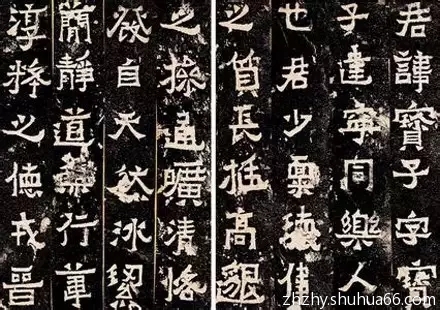 君諱寶子字寶
子建寧同樂人
也君少稟瓌偉
之質長挺高邈
之操通曠清恪
發自天然冰絜
簡靜道兼行葦
淳粹之德戎晉
zhzhy.shuhua66.com